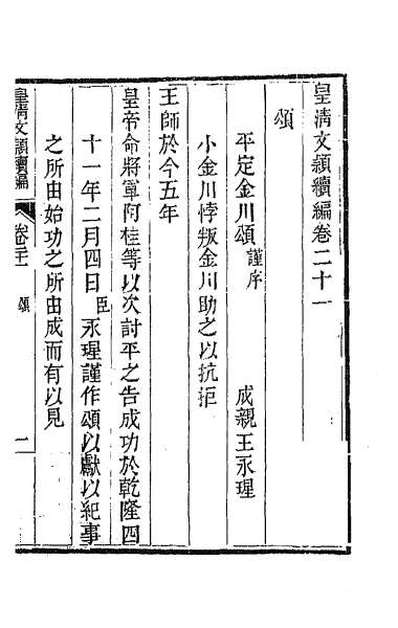 皇清文穎續編卷二十一
頌
平定金川頌謹序 成親王永瑆
小金川悖叛金川助之以抗拒
王師於今五年
皇帝命將軍阿桂等以次討平之告成功於乾隆四
十一年二月四日臣永瑆謹作頌以獻以紀事
之所由始功之所由成而有以見
皇清文穎續編 卷二十一 頌 一